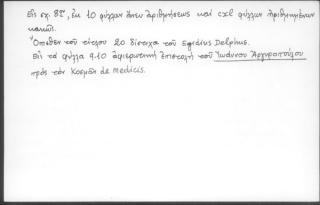 Εἰς σχ. 8ον, ἐκ 10 φύλλων ἄνευ ἀριθμήσεως καὶ cxl φύλλων ἠριθμημένων
κακῶς.
Ὄπισθεν τοῦ τίτλου 20 δίστιχα τοῦ Egidius Delphus.
Εἰς τὰ φύλλα 9-10 ἀφιερωτικὴ ἐπιστολὴ τοῦ Ἰωάννου Ἀργυροπούλου
πρὸς τὸν Κοσμᾶν de Medicis.